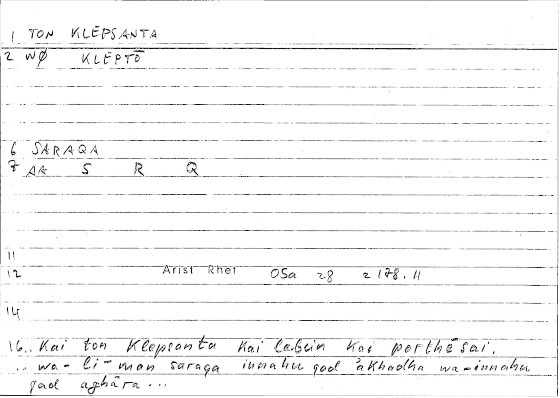 1 TON KLEPSANTA
2 WØ KLEPTŌ
6 SARAQA
7 AA S R Q
11
12 Arist Rhet 05a 28 = 178.11
14
16.. Kai ton Klepsanta Kai labein Kai porthēsai.
.. wa-li-man saraqa innahu qad akhadha wa-innahu
qad aghāra...